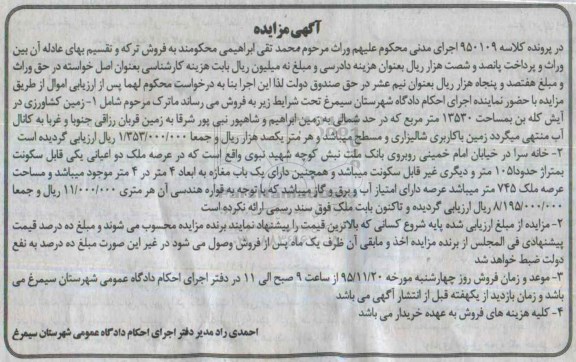 آگهی مزایده
در پرونده کلاسه ۹۵۰۱۰۹ اجرای مدنی محکوم علیهم وراث مرحوم محمد تقی ابراهیمی محکومند به فروش ترکه و تقسیم بهای عادله آن بین
وراث و پرداخت پانصد و شصت هزار ریال بعنوان هزینه دادرسی و مبلغ نه میلیون ریال بابت هزینه کارشناسی بعنوان اصل خواسته در حق وراث
و مبلغ هفتصد و پنجاه هزار ریال بعنوان نیم عشر در حق صندوق دولت لذا این اجرا بنا به درخواست محکوم لهما پس از ارزیابی اموال از طریق
مزایده با حضور نماینده اجرای احکام دادگاه شهرستان سیمرغ تحت شرایط زیر به فروش می رساند ماترک مرحوم شامل ۱- زمین کشاورزی در
آیش کله بن بمساحت ۱۳۵۳۰ متر مربع که در حد شمالی به زمین ابراهیم و شاهپور نبی پور شرقا به زمین قربان رزاقی جنوبا و غربا به کانال
آب منتهی میگردد زمین باکاربری شالیزاری و مسطح میباشد و هر متر یکصد هزار ریال و جمعا ۱/۳۵۳/۰۰۰/۰۰۰ ریال ارزیابی گردیده است
۲- خانه سرا در خیابان امام خمینی روبروی بانک ملت نبش کوچه شهید نبوی واقع است که در عرصه ملک دو اعیانی یکی قابل سکونت
بمتراژ حدودا ۱۰۵ متر و دیگری غیر قابل سکونت میباشد و همچنین دارای یک باب مغازه به ابعاد ۴ متر در ۴ متر موجود میباشد و مساحت
عرصه ملک ۷۴۵ متر میباشد عرصه دارای امتیاز آب و برق و گاز میباشد که با توجه به قواره هندسی آن هر متری ۱۱/۰۰۰/۰۰۰ ریال و جمعا
۸/۱۹۵/۰۰۰/۰۰۰ ریال ارزیابی گردیده و تاکنون بابت ملک فوق سند رسمی ارائه نکرده است
۲- مزایده از مبلغ ارزیابی شده پایه شروع کسانی که بالاترین قیمت را پیشنهاد نمایند برنده مزایده محسوب می شوند و مبلغ ده درصد قیمت
پیشنهادی فی المجلس از برنده مزایده اخذ و مابقی آن ظرف یک ماه پس از فروش وصول می شود در غیر این صورت مبلغ ده درصد به نفع
دولت ضبط خواهد شد
۳- موعد و زمان فروش روز چهارشنبه مورخه ۹۵/۱۱/۲۰ از ساعت ۹ صبح الی ۱۱ در دفتر اجرای احکام دادگاه عمومی شهرستان سیمرغ می
باشد و زمان بازدید از یکهفته قبل از انتشار آگهی می باشد
۴- کلیه هزینه های فروش به عهده خریدار می باشد
احمدی راد مدیر دفتر اجرای احکام دادگاه عمومی شهرستان سیمرغ